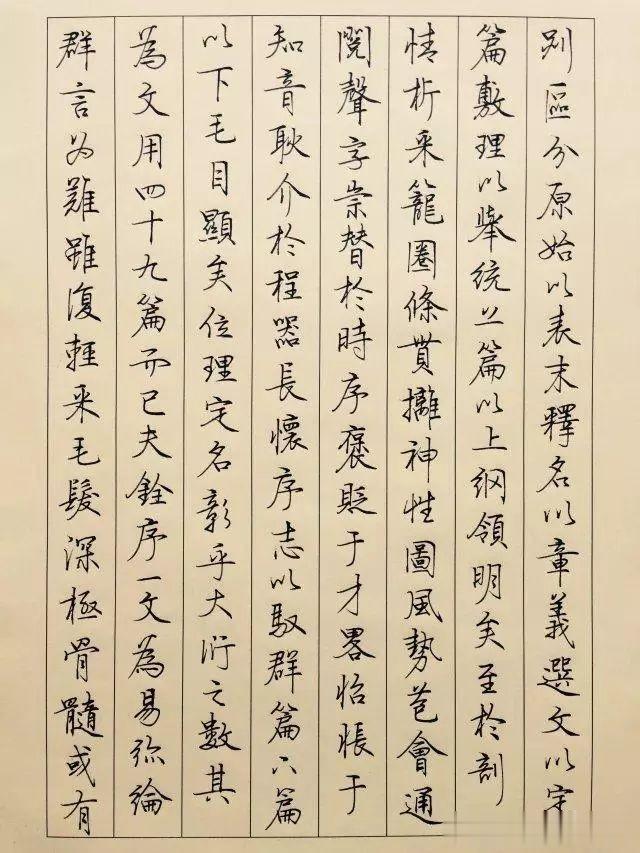 别區分原始以表末釋名以章義選文以定
篇敷理以舉统上篇以上纲領明矣至於剖
情析采籠圈條貫攡神性圖風勢苞會通
閲聲字崇替於時序褒貶于才畧怡悵于
知音耿介於程器長懷序志以馭群篇下篇
以下毛目顯矣位理定名彰乎大衍之數其
為文用四十九篇而已夫銓序一文為易弥綸
群言为難雖復輕采毛髮深極骨髓或有